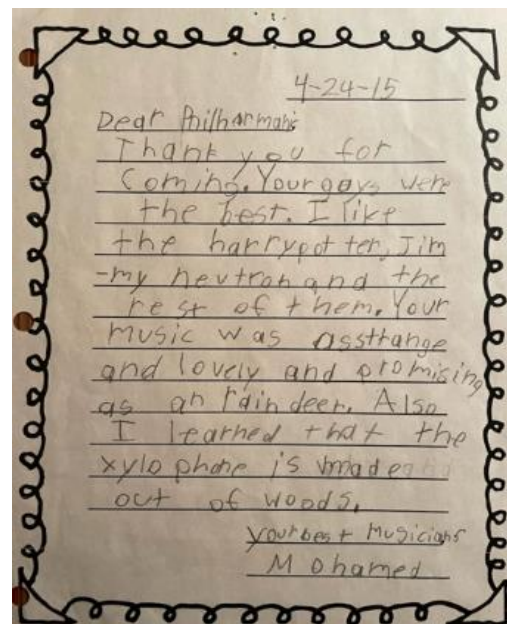 4-24-15
Dear Philharmanic
Thank you for
Coming. Your gays were
the best. I like
the harrypotter, Jim
-my neutron and the
rest of them. Your
music was asstrange
and lovely and promising
as an raindeer. Also
I learned that the
xylophone is made
out of woods.
your best Musicians
Mohamed